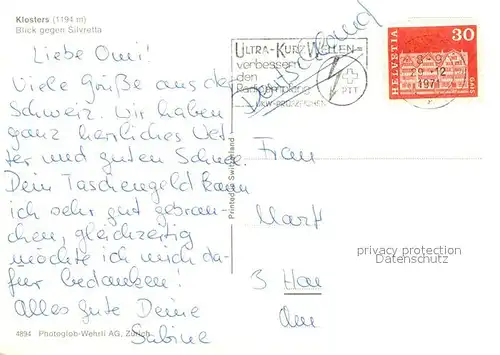 Klosters (1194 m)
Blick gegen Silvretta
Liebe Omi!
Viele Grüße aus der
Schweiz. Wir haben
ganz herrliches Wet-
ter und guten Schnee.
Dein Taschengeld kann
ich sehr gut gebrau-
chen, gleichzeitig
möchte ich mich da-
für bedanken!
Alles gute Deine
Sabine
4894 Photoglob-Wehrli AG, Zürich
Printed in Switzerland
ULTRA-KURZ WELLEN=
verbessern
den
Radioempfang
PTT
Deutschland
HELVETIA
30
GAIS
12
1971
Frau
Marx
3 Han
Am
privacy protection
Datenschutz